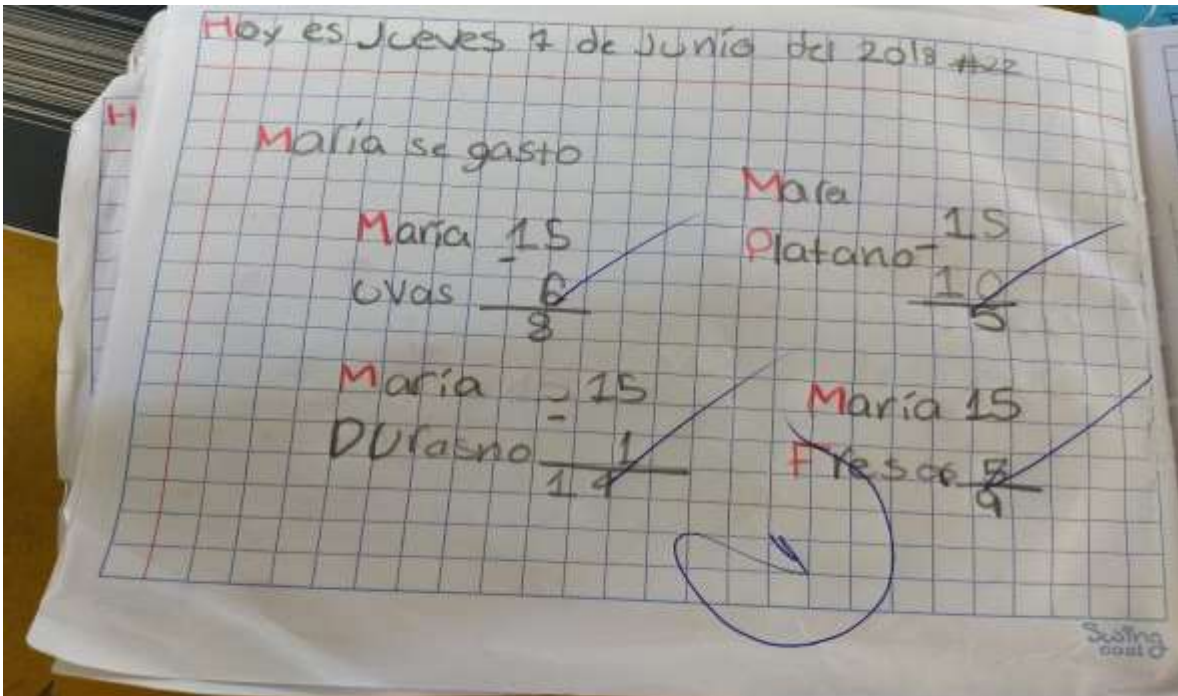 Hoy es Jueves 7 de Junio del 2018 #22
H
María se gasto
María - 15
uvas 6
8
Mara
Platano - 15
10
5
María - 15
DUrasno 1
14
María 15
Fresas 8
9